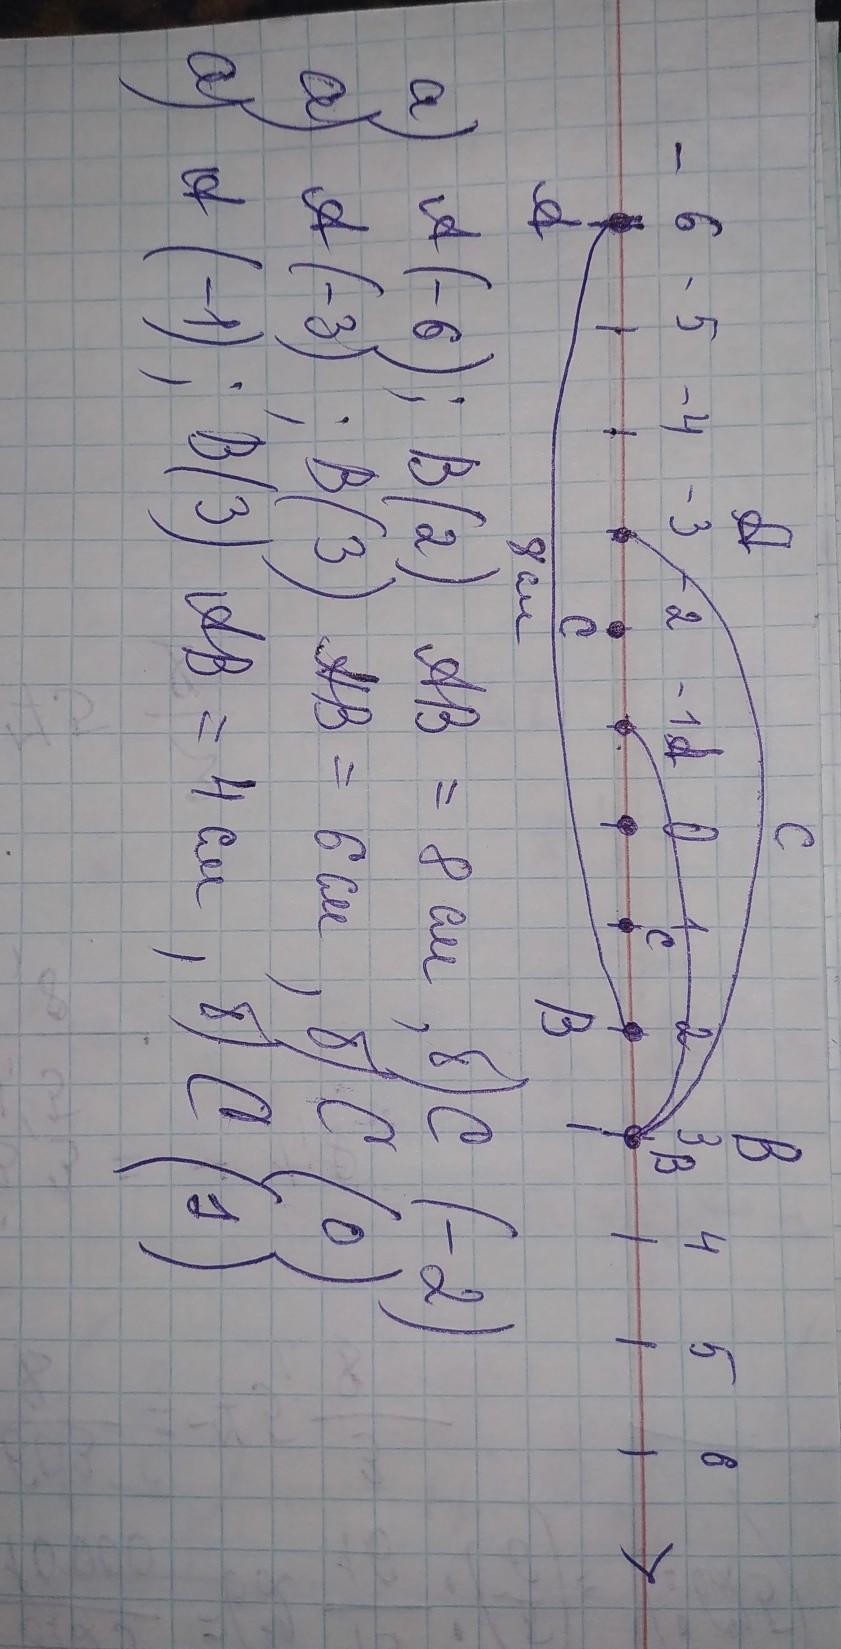 A C B
-6 -5 -4 -3 -2 -1 A 0 1 2 3 4 5 6
C B
A C B
8 см
а) A(-6); B(2) AB = 8 см, б) C (-2)
а) A(-3); B(3) AB = 6 см, б) C (0)
а) A(-1); B(3) AB = 4 см, б) C (1)